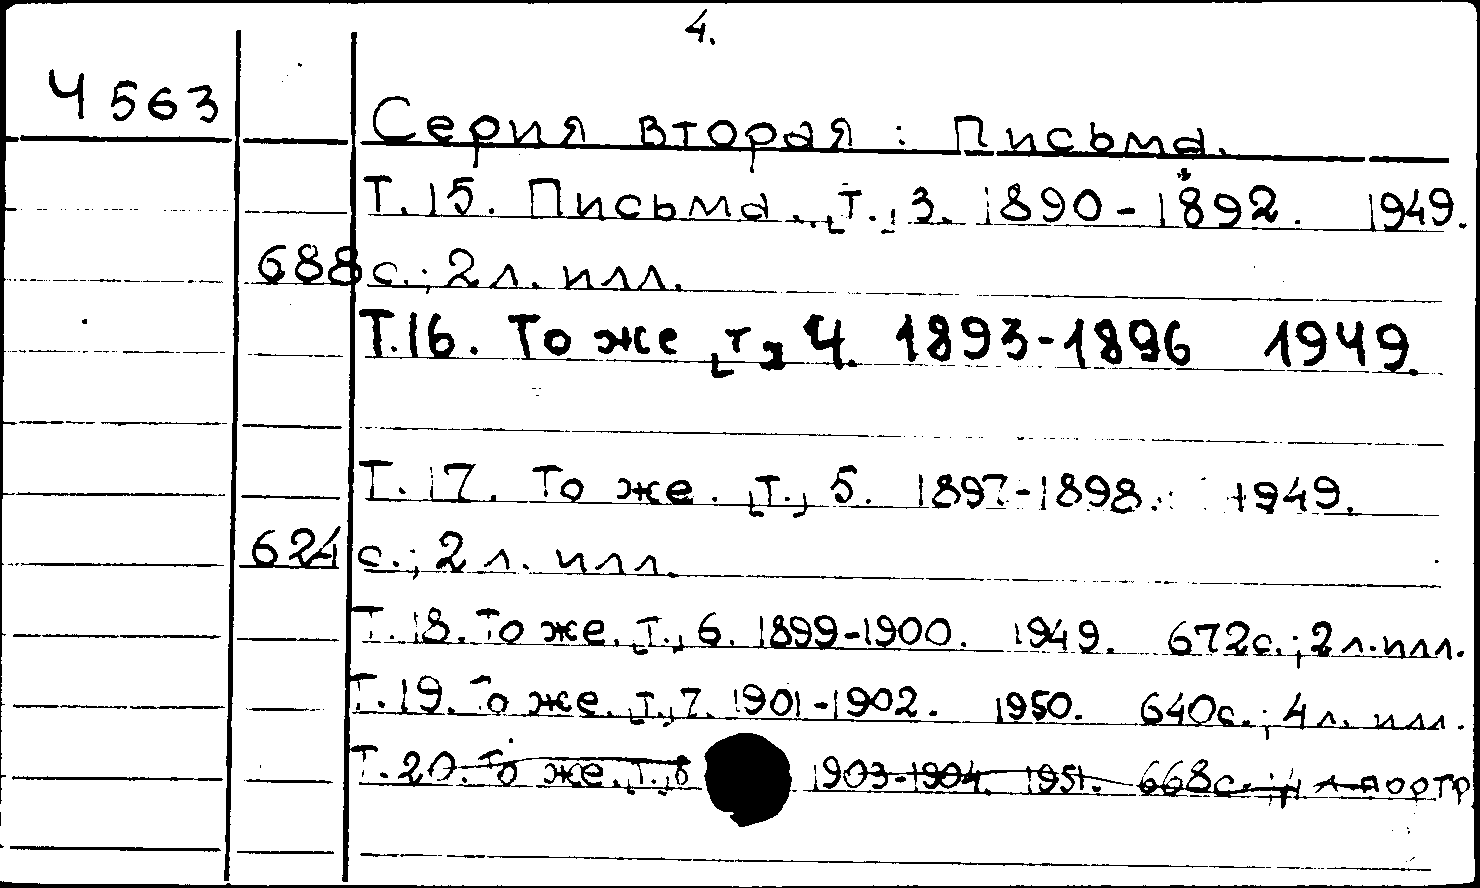 4.
Ч 563
Серия вторая : Письма.
Т. 15. Письма.. [т.] 3. 1890 - 1892. 1949.
688 с.; 2 л. илл.
Т. 16. То же [т] 4. 1893-1896 1949.
Т. 17. То же. [т.] 5. 1897-1898. 1949.
624 с.; 2 л. илл.
Т. 18. То же. [т.] 6. 1899-1900. 1949. 672с.; 2 л. илл.
Т. 19. То же. [т.] 7. 1901-1902. 1950. 640с.; 4 л. илл.
Т. 20. То же. [т.] 8 1903-1904. 1951. 668с.; л портр